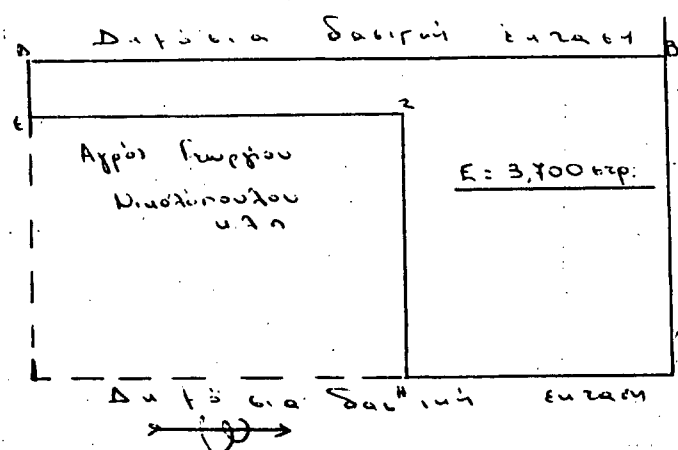 Δημόσια δασική έκταση
Α
Β
Ε
Ζ
Αγρός Γεωργίου
Νικολοπούλου
κ λ π
Ε = 3,700 στρ.
Η
Δημόσια δασική έκταση